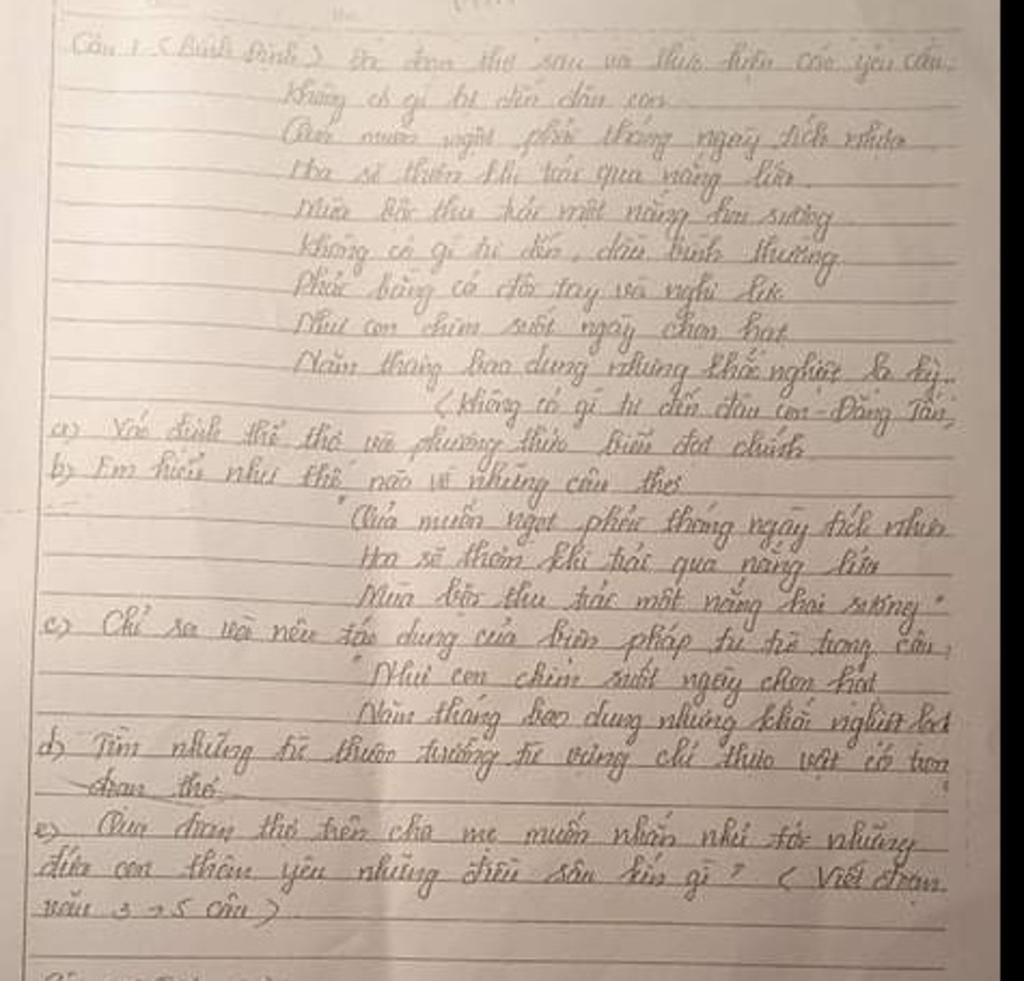 Câu 1 (Bình Định) Đọc đoạn thơ sau và thực hiện các yêu cầu:
Không có gì tự đến đâu con
Quả muốn ngọt phải tháng ngày tích nhựa
Hoa sẽ thơm khi trải qua nắng lửa
Mùa bội thu trải một nắng hai sương
Không có gì tự đến, dẫu bình thường
Phải bằng cả đôi tay và nghị lực
Như con chim suốt ngày chọn hạt
Năm tháng bao dung nhưng khắc nghiệt lạ kỳ..
(Không có gì tự đến đâu con - Đăng Tấn)
a) Xác định thể thơ và phương thức biểu đạt chính
b) Em hiểu như thế nào về những câu thơ
"Quả muốn ngọt phải tháng ngày tích nhựa
Hoa sẽ thơm khi trải qua nắng lửa
Mùa bội thu trải một nắng hai sương"
c) Chỉ ra và nêu tác dụng của biện pháp tu từ trong câu:
"Như con chim suốt ngày chọn hạt
Năm tháng bao dung nhưng khắc nghiệt
d) Tìm những từ thuộc trường từ vựng chỉ thực vật có trong
đoạn thơ
e) Qua đoạn thơ trên cha mẹ muốn nhắn nhủ tới những
đứa con thân yêu những điều sâu kín gì? (Viết đoạn
văn 3 → 5 câu)